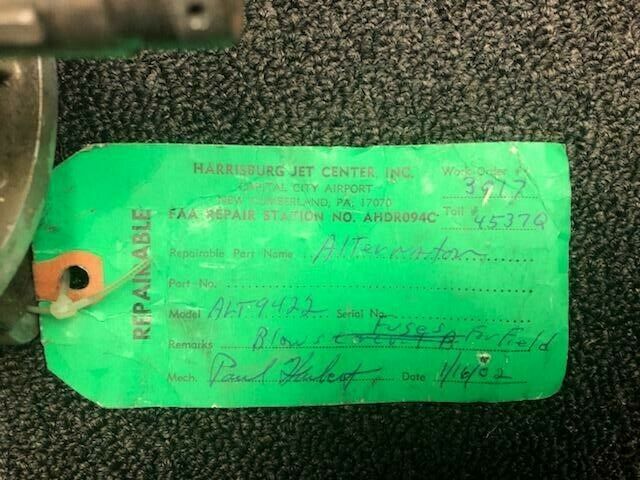 HARRISBURG JET CENTER, INC. Work Order # 3917
CAPITAL CITY AIRPORT
NEW CUMBERLAND, PA, 17070
FAA REPAIR STATION NO. AHDR094C Tail # 4537Q
REPAIRABLE
Repairable Part Name Alternator
Part No.
Model ALT9422 Serial No.
Remarks Blows Fuses For Field
Mech. Paul Date 1/16/02